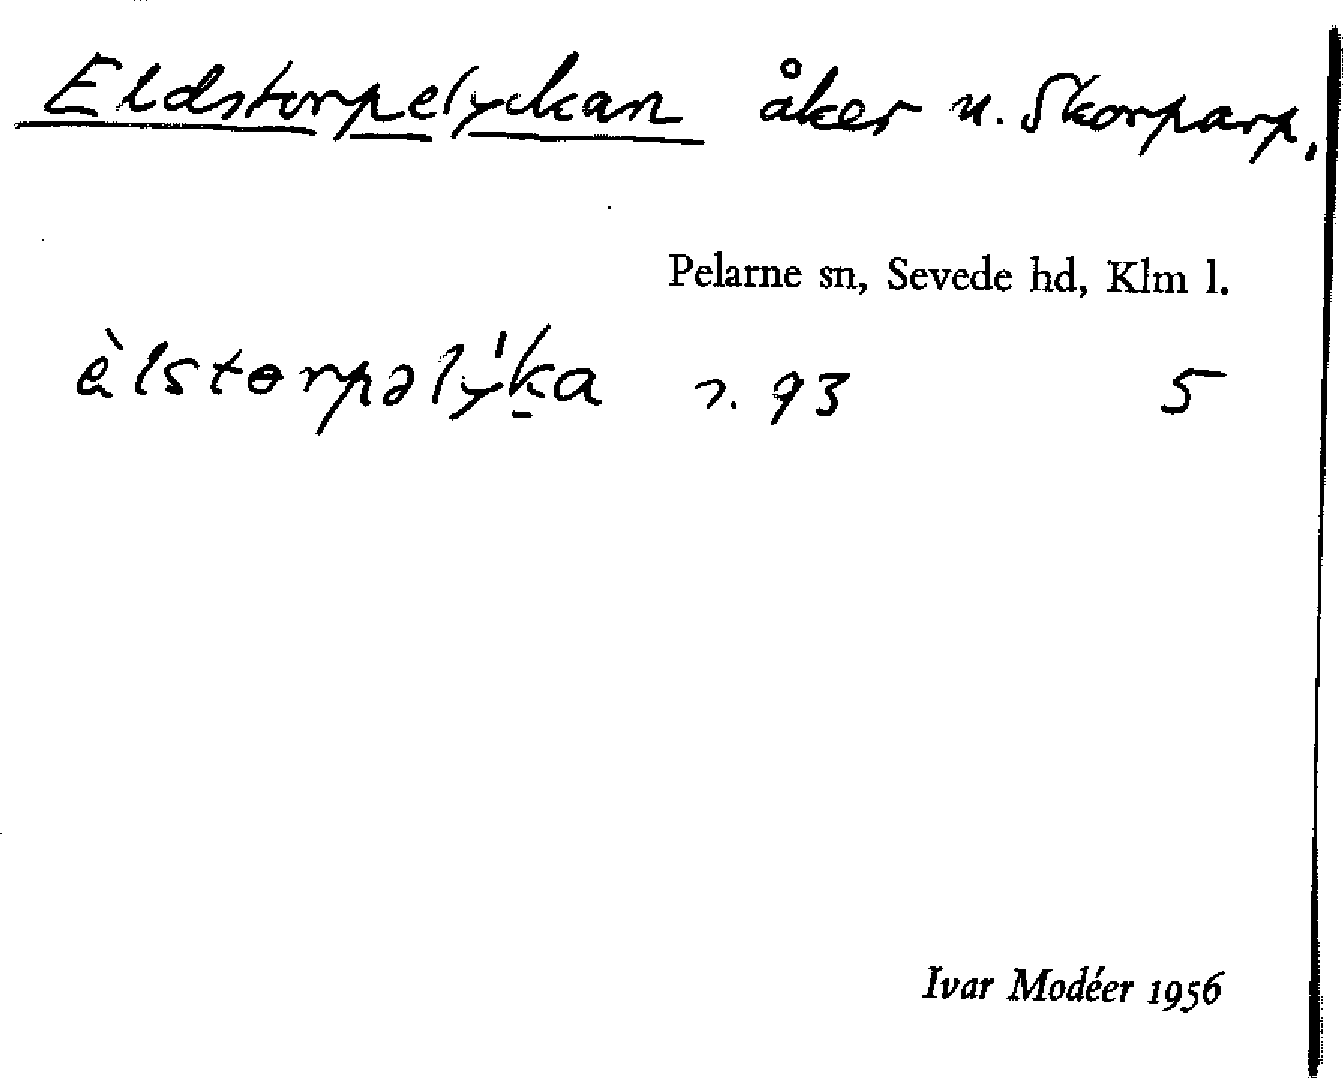 Eldstorpelyckan åker u. Skorparp.
Pelarne sn, Sevede hd, Klm l.
èlstɵrpəlyˈka n. 93 5
Ivar Modéer 1956